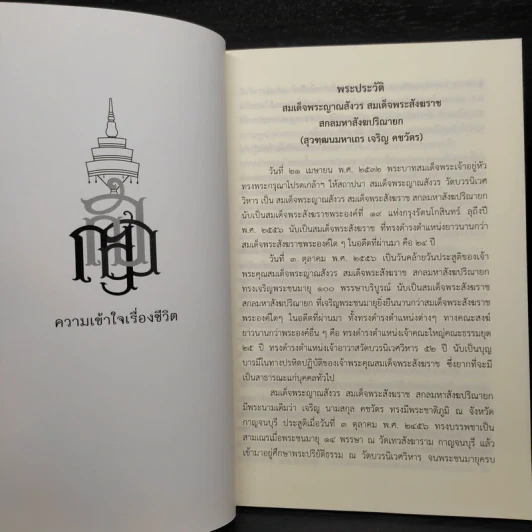 ความเข้าใจเรื่องชีวิต
พระประวัติ
สมเด็จพระญาณสังวร สมเด็จพระสังฆราช
สกลมหาสังฆปริณายก
(สุวฑฺฒนมหาเถร เจริญ คชวัตร)
วันที่ ๒๑ เมษายน พ.ศ. ๒๕๓๒ พระบาทสมเด็จพระเจ้าอยู่หัว
ทรงพระกรุณาโปรดเกล้าฯ ให้สถาปนา สมเด็จพระญาณสังวร วัดบวรนิเวศ
วิหาร เป็น สมเด็จพระญาณสังวร สมเด็จพระสังฆราช สกลมหาสังฆปริณายก
นับเป็นสมเด็จพระสังฆราชพระองค์ที่ ๑๙ แห่งกรุงรัตนโกสินทร์ ลุถึงปี
พ.ศ. ๒๕๕๖ นับเป็นสมเด็จพระสังฆราช ที่ทรงดำรงตำแหน่งยาวนานกว่า
สมเด็จพระสังฆราชพระองค์ใด ๆ ในอดีตที่ผ่านมา คือ ๒๔ ปี
วันที่ ๓ ตุลาคม พ.ศ. ๒๕๕๖ เป็นวันคล้ายวันประสูติของเจ้า
พระคุณสมเด็จพระญาณสังวร สมเด็จพระสังฆราช สกลมหาสังฆปริณายก
ทรงเจริญพระชนมายุ ๑๐๐ พรรษาบริบูรณ์ นับเป็นสมเด็จพระสังฆราช
สกลมหาสังฆปริณายก ที่เจริญพระชนมายุยิ่งยืนนานกว่าสมเด็จพระสังฆราช
พระองค์ใดๆ ในอดีตที่ผ่านมา ทั้งทรงดำรงตำแหน่งต่างๆ ทางคณะสงฆ์
ยาวนานกว่าพระองค์อื่น ๆ คือ ทรงดำรงตำแหน่งเจ้าคณะใหญ่คณะธรรมยุต
๒๕ ปี ทรงดำรงตำแหน่งเจ้าอาวาสวัดบวรนิเวศวิหาร ๕๒ ปี นับเป็นบุญ
บารมีในทางปรหิตปฏิบัติของเจ้าพระคุณสมเด็จพระสังฆราช ซึ่งยากที่จะมี
เป็นสาธารณะแก่บุคคลทั่วไป
สมเด็จพระญาณสังวร สมเด็จพระสังฆราช สกลมหาสังฆปริณายก
มีพระนามเดิมว่า เจริญ นามสกุล คชวัตร ทรงมีพระชาติภูมิ ณ จังหวัด
กาญจนบุรี ประสูติเมื่อวันที่ ๓ ตุลาคม พ.ศ. ๒๔๕๖ ทรงบรรพชาเป็น
สามเณรเมื่อพระชนมายุ ๑๔ พรรษา ณ วัดเทวสังฆาราม กาญจนบุรี แล้ว
เข้ามาอยู่ศึกษาพระปริยัติธรรม ณ วัดบวรนิเวศวิหาร จนพระชนมายุครบ